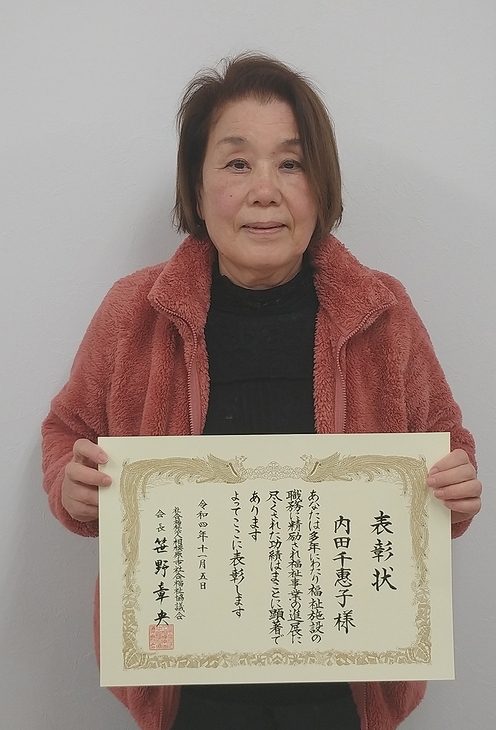 表彰状
内田千惠子様
あなたは多年にわたり福祉施設の
職務に精励され福祉事業の進展に
尽くされた功績はまことに顕著で
あります
よってここに表彰します
令和四年十一月五日
社会福祉法人相模原市社会福祉協議会
会長 笹野章央